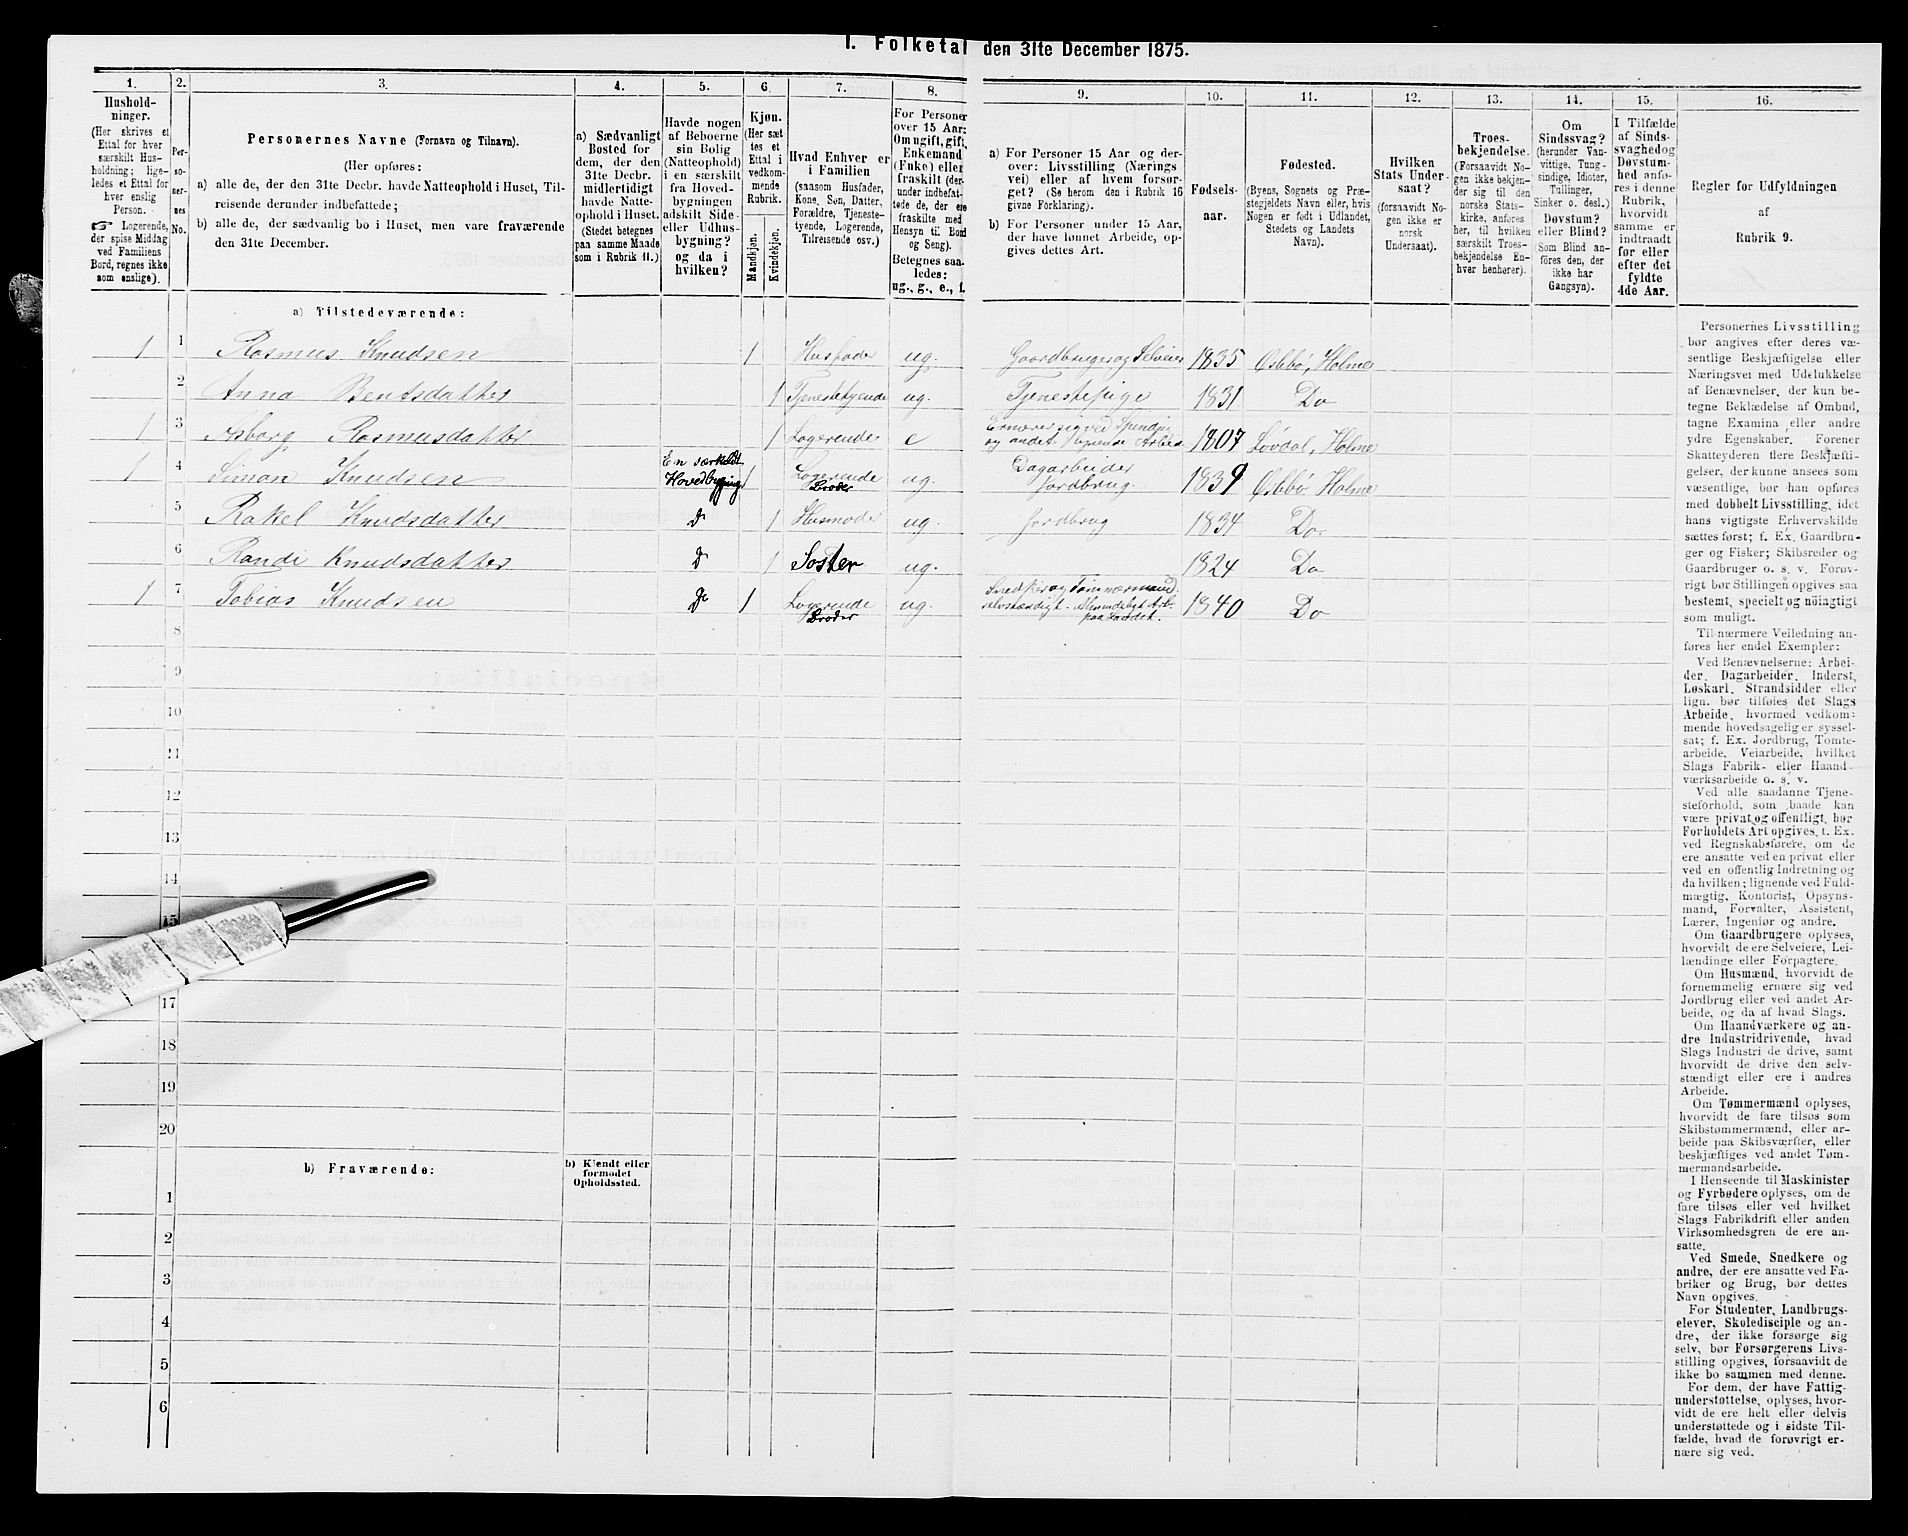 I. Folketal den 31te December 1875.
1. 2. 3. 4. 5. 6. 7. 8. 9. 10. 11. 12. 13. 14. 15. 16.
Hushold-
ninger.
(Her skrives et
Ettal for hver
særskilt Hus-
holdning; lige-
ledes et Ettal for
hver enslig
Person.
☞ Logerende,
der spise Middag
ved Familiens
Bord, regnes ikke
som enslige).
Per-
so-
ner-
nes
No.
Personernes Navne (Fornavn og Tilnavn).
(Her opføres:
a) alle de, der den 31te Decbr. havde Natteophold i Huset, Til-
reisende derunder indbefattede;
b) alle de, der sædvanlig bo i Huset, men vare fraværende
den 31te December.
a) Sædvanligt
Bosted for
dem, der den
31te Decbr.
midlertidigt
havde Natte-
ophold i Huset.
(Stedet betegnes
paa samme Maade
som i Rubrik 11.)
Havde nogen
af Beboerne
sin Bolig
(Natteophold)
i en særskilt
fra Hoved-
bygningen
adskilt Side-
eller Udhus-
bygning?
og da i
hvilken?
Kjøn.
(Her sæt
tes et
Ettal i
vedkom-
mende
Rubrik.
Mandkjøn.
Kvindekjøn.
Hvad Enhver er
i Familien
(saasom Husfader,
Kone, Søn, Datter,
Forældre, Tjeneste-
tyende, Logerende,
Tilreisende osv.)
For Personer
over 15 Aar:
Om ugift, gift,
Enkemand
(Enke) eller
fraskilt (der-
under indbefat-
tede de, der ere
fraskilte med
Hensyn til Bord
og Seng).
Betegnes saa-
ledes:
ug., g., e., f.
a) For Personer 15 Aar og der-
over: Livsstilling (Nærings
vei) eller af hvem forsør-
get? (Se herom den i Rubrik 16
givne Forklaring).
b) For Personer under 15 Aar,
der have lønnet Arbeide, op-
gives dettes Art.
Fødsels-
aar.
Fødested.
(Byens, Sognets og Præ-
stegjeldets Navn eller, hvis
Nogen er født i Udlandet,
Stedets og Landets
Navn).
Hvilken
Stats Under-
saat?
(forsaavidt No-
gen ikke er
norsk
Undersaat).
Troes-
bekjendelse.
(Forsaavidt No-
gen ikke bekjen-
der sig til den
norske Stats-
kirke, anføres
her, til hvilken
særskilt Troes-
bekjendelse En-
hver henhører).
Om
Sindssvag?
(herunder Van-
vittige, Tung-
sindige, Idioter,
Tullinger,
Sinker o. desl.)
Døvstum?
eller Blind?
(Som Blind an-
føres den, der
ikke har
Gangsyn).
I Tilfælde
af Sinds-
svaghed og
Døvstum-
hed anfø-
res i denne
Rubrik,
hvorvidt
samme er
indtraadt
før eller
efter det
fyldte
4de Aar.
Regler for Udfyldningen
af
Rubrik 9.
a) Tilstedeværende:
1 1 Rasmus Knudsen 1 Husfader ug. Gaardbruger og Selveier 1835 Osebø, Holme
2 Anna Bentsdatter 1 Tjenestetyende ug. Tjenestepige 1831 Do
1 3 Asborg Rasmusdatter 1 Logerende e Ernærer sig ved Spinding
og andet lignende Arbeide 1807 Løvdal, Holme
1 4 Simon Knudsen En særskilt
Hovedbygning 1 Logerende
Broder ug. Dagarbeider
Jordbrug. 1839 Osebø Holme
5 Rakel Knudsdatter Do 1 Husmoder ug. Jordbrug 1834 Do.
6 Randi Knudsdatter Do 1 Søster ug. 1824 Do
1 7 Tobias Knudsen Do 1 Logerende
Broder ug. Snedker og Tømmermand
selvstændigt. Almindeligt Arb.
paa Landet. 1840 Do
8
9
10
11
12
13
14
15
17
18
19
20
b) Fraværende:
b) Kjendt eller
formodet
Opholdssted.
1
2
3
4
5
6
Personernes Livsstilling
bør angives efter deres væ-
sentlige Beskjæftigelse eller
Næringsvei med Udelukkelse
af Benævnelser, der kun be-
tegne Beklædelse af Ombud,
tagne Examina eller andre
ydre Egenskaber. Forener
Skatteyderen flere Beskjæfti-
gelser, der kunne ansees som
væsentlige, bør han opføres
med dobbelt Livsstilling, idet
hans vigtigste Erhvervskilde
sættes først; f. Ex. Gaardbru-
ger og Fisker; Skibsreder og
Gaardbruger o. s. v. Forøv-
rigt bør Stillingen opgives saa
bestemt, specielt og nöiagtigt
som muligt.
Til nærmere Veiledning an-
føres her endel Exempler:
Ved Benævnelserne: Arbei-
der, Dagarbeider, Inderst,
Løskarl, Strandsidder eller
lign. bør tilføies det Slags
Arbeide, hvormed vedkom-
mende hovedsagelig er syssel-
sat; f. Ex. Jordbrug, Tomte-
arbeide, Veiarbeide, hvilket
Slags Fabrik- eller Haand-
værksarbeide o. s. v.
Ved alle saadanne Tjene-
steforhold, som baade kan
være privat og offentligt, bør
Forholdets Art opgives, t. Ex.
ved Regnskabsførere, om de
ere ansatte ved en privat eller
ved en offentlig Indretning og
da hvilken; lignende ved Fuld-
mægtig, Kontorist, Opsyns-
mand, Forvalter, Assistent,
Lærer, Ingeniør og andre.
Om Gaardbrugere oplyses,
hvorvidt de ere Selveiere, Lei-
lændinge eller Forpagtere.
Om Husmænd, hvorvidt de
fornemmelig ernære sig ved
Jordbrug eller ved andet Ar-
beide, og da af hvad Slags.
Om Haandværkere og an-
dre Industridrivende, hvad
Slags Industri de drive, samt
hvorvidt de drive den selv-
stændigt eller ere i andres
Arbeide.
Om Tømmermænd oplyses,
hvorvidt de fare tilsøs som
Skibstømmermænd, eller ar-
beide paa Skibsværfter, eller
beskjæftiges ved andet Tøm-
mermandsarbeide.
I Henseende til Maskinister
og Fyrbødere oplyses, om de
fare tilsøs eller ved hvilket
Slags Fabrikdrift eller anden
Virksomhedsgren de ere an-
satte.
Ved Smede, Snedkere og
andre, der ere ansatte ved Fa-
briker og Brug, bør dettes
Navn opgives.
For Studenter, Landbrugs-
elever, Skoledisciple og an-
dre, der ikke forsørge sig
selv, bør Forsørgerens Livs-
stilling opgives, forsaavidt de
ikke bo sammen med denne.
For dem, der have Fattig-
understøttelse, oplyses, hvor-
vidt de ere helt eller delvis
understøttede og i sidste Til-
fælde, hvad de forøvrigt er-
nære sig ved.